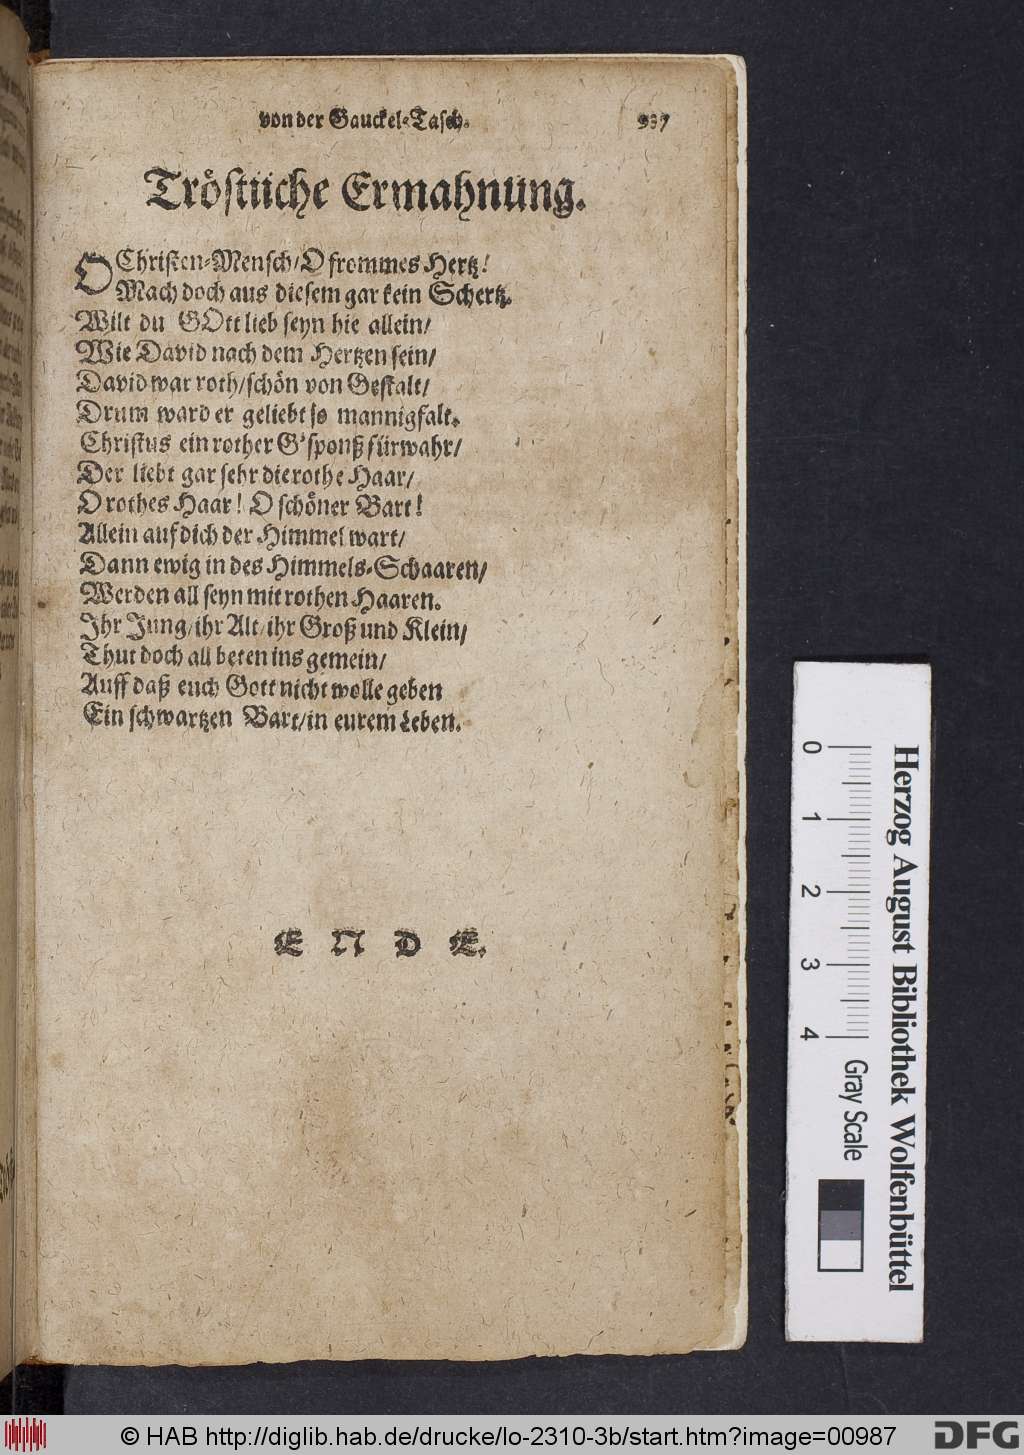 von der Gauckel-Tasch. 937
Tröstliche Ermahnung.
O Christen-Mensch/ O frommes Hertz!
Mach doch aus diesem gar kein Schertz.
Wilt du GOtt lieb seyn hie allein/
Wie David nach dem Hertzen sein/
David war roth/ schön von Gestalt/
Drum ward er geliebt so mannigfalt.
Christus ein rother G'sponß fürwahr/
Der liebt gar sehr die rothe Haar/
O rothes Haar! O schöner Bart!
Allein auf dich der Himmel wart/
Dann ewig in des Himmels-Schaaren/
Werden all seyn mit rothen Haaren.
Ihr Jung/ ihr Alt/ ihr Groß und Klein/
Thut doch all beten ins gemein/
Auff daß euch Gott nicht wolle geben
Ein schwartzen Bart/ in eurem Leben.
E N D E.
0 1 2 3 4
Gray Scale
Herzog August Bibliothek Wolfenbüttel
© HAB http://diglib.hab.de/drucke/lo-2310-3b/start.htm?image=00987
DFG